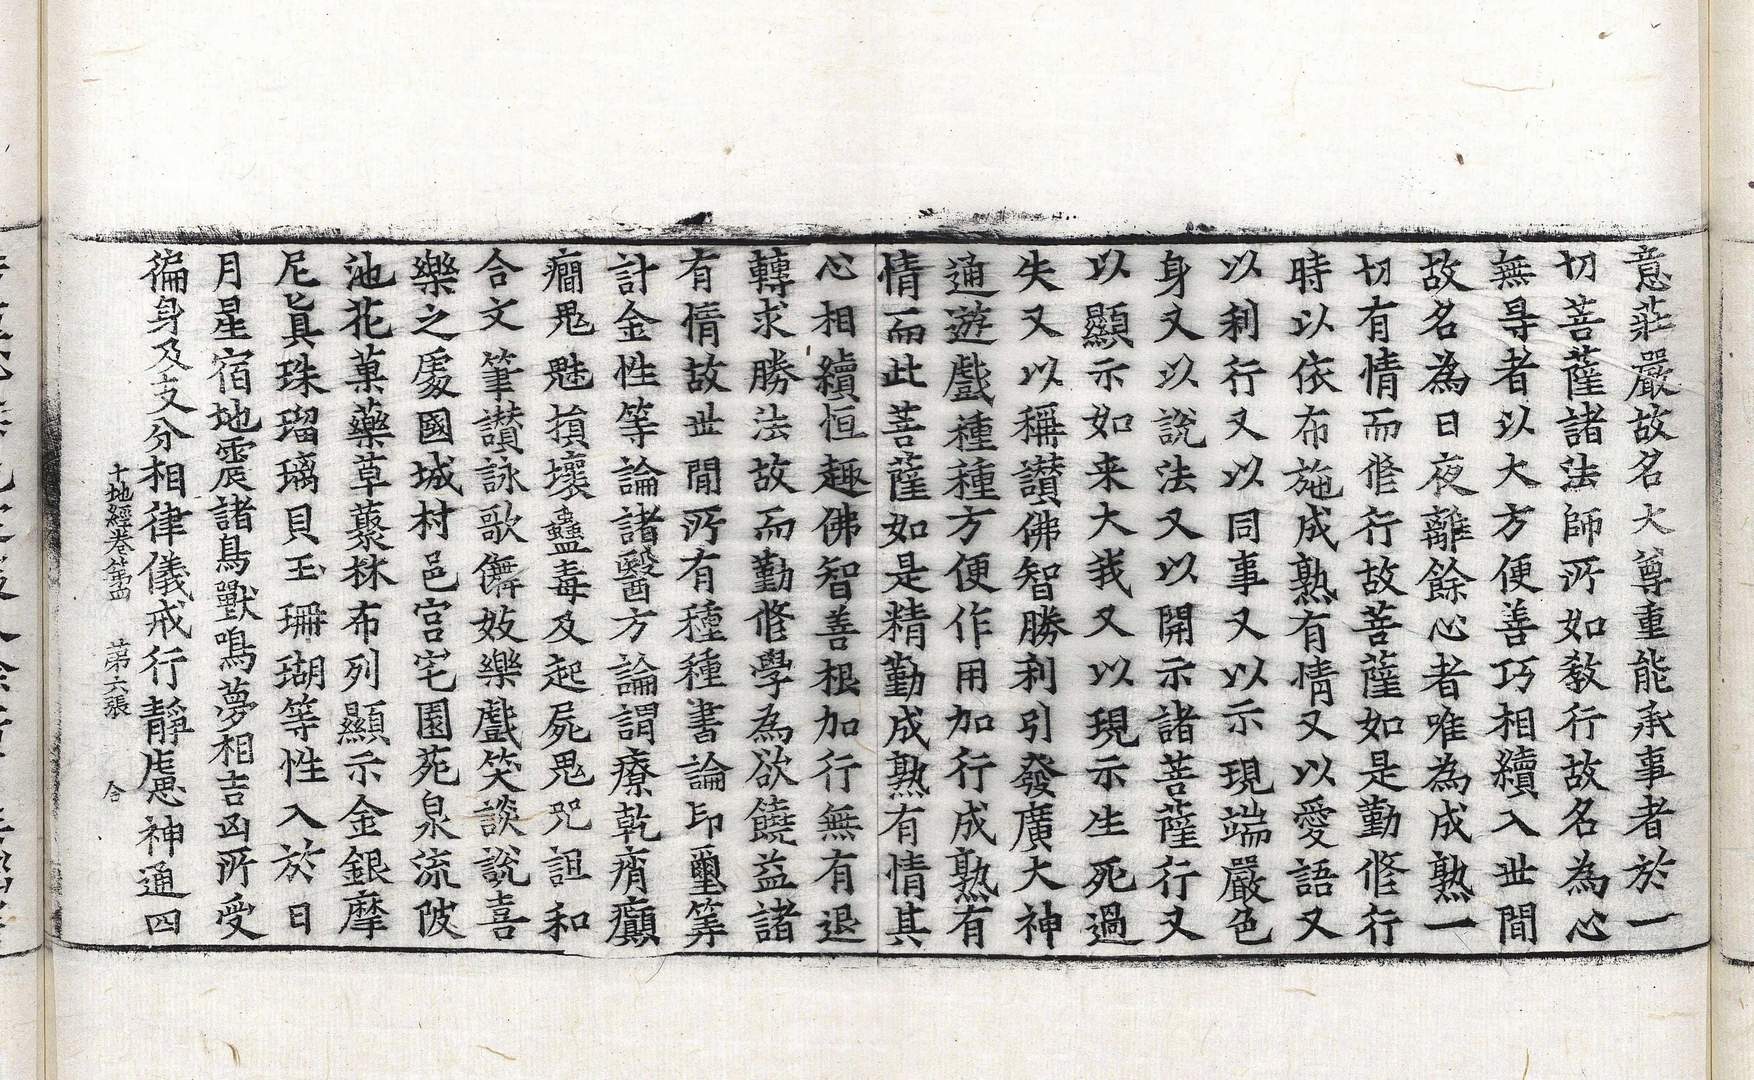 意莊嚴故名大尊重能承事者於一
切菩薩諸法師所如教行故名為心
無㝵者以大方便善巧相續入世間
故名為日夜離餘心者唯為成熟一
切有情而修行故菩薩如是勤修行
時以依布施成熟有情又以愛語又
以利行又以同事又以示現端嚴色
身又以說法又以開示諸菩薩行又
以顯示如来大我又以現示生死過
失又以稱讃佛智勝利引發廣大神
通遊戲種種方便作用加行成熟有
情而此菩薩如是精勤成熟有情其
心相續恒趣佛智善根加行無有退
轉求勝法故而勤修學為欲饒益諸
有情故世間所有種種書論印璽筭
計金性等論諸醫方論謂療乾痟癲
癎鬼魅損壞蠱毒及起屍鬼咒詛和
合文筆讃詠歌儛妓樂戲笑談說喜
樂之處國城村邑宮宅園苑泉流陂
池花菓藥草藂林布列顯示金銀摩
尼真珠瑠璃貝玉珊瑚等性入於日
月星宿地震諸鳥獸鳴夢相吉凶所受
徧身及支分相律儀戒行靜慮神通四
十地經卷第四 第六張 合